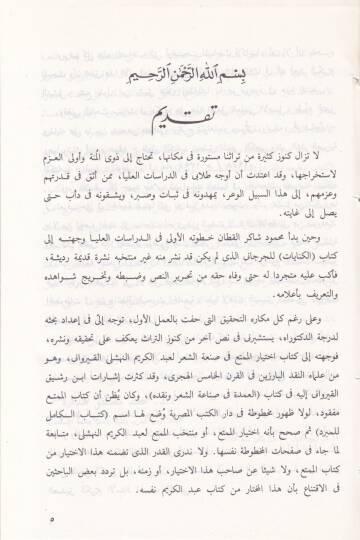 بِسْمِ ٱللهِ ٱلرَّحْمٰنِ ٱلرَّحِيمِ
تقديم
لا تزال كنوز كثيرة من تراثنا مستورة فى مكانها، تحتاج إلى ذوى المُنة وأولى العزم
لاستخراجها، وقد اعتدت أن أوجه طلابى فى الدراسات العليا، ممن أثق فى قدرتهم
وعزمهم، إلى هذا السبيل الوعر، يمهدونه فى ثبات وصبر، ويشقونه فى دأب حتى
يصل إلى غايته.
وحين بدأ محمود شاكر القطان خطوته الأولى فى الدراسات العليا وجهته إلى
كتاب (الكنايات) للجرجانى الذى لم يكن قد نشر منه غير منتخبه نشرة قديمة رديئة،
فأكب عليه متجردا له حتى وفاه حقه من تحرير النص وضبطه وتخريج شواهده
والتعريف بأعلامه.
وعلى رغم كل مكاره التحقيق التى حفت بالعمل الأول، توجه إلىّ فى إعداد بحثه
لدرجة الدكتوراه، يستشيرنى فى نص آخر من كنوز التراث يعكف على تحقيقه ونشره،
فوجهته إلى كتاب اختيار الممتع فى صنعة الشعر لعبد الكريم النهشلى القيروانى، وهو
من علماء النقد البارزين فى القرن الخامس الهجرى، وقد كثرت إشارات ابن رشيق
القيروانى إليه فى كتاب (العمدة فى صناعة الشعر ونقده)، وكان يُظن أن كتاب الممتع
مفقود، لولا ظهور مخطوطة فى دار الكتب المصرية وُضع لها اسم (كتاب الكامل
للمبرد) ثم صحح بأنه اختيار الممتع، أو منتخب الممتع لعبد الكريم النهشلى، متابعة
لما جاء فى صفحات المخطوطة نفسها. ولا ندرى القدر الذى تضمنه هذا الاختيار من
كتاب الممتع، ولا شيئا عن صاحب هذا الاختيار، أو زمنه، بل تردد بعض الباحثين
فى الاقتناع بأن هذا المختار من كتاب عبد الكريم نفسه.
٥